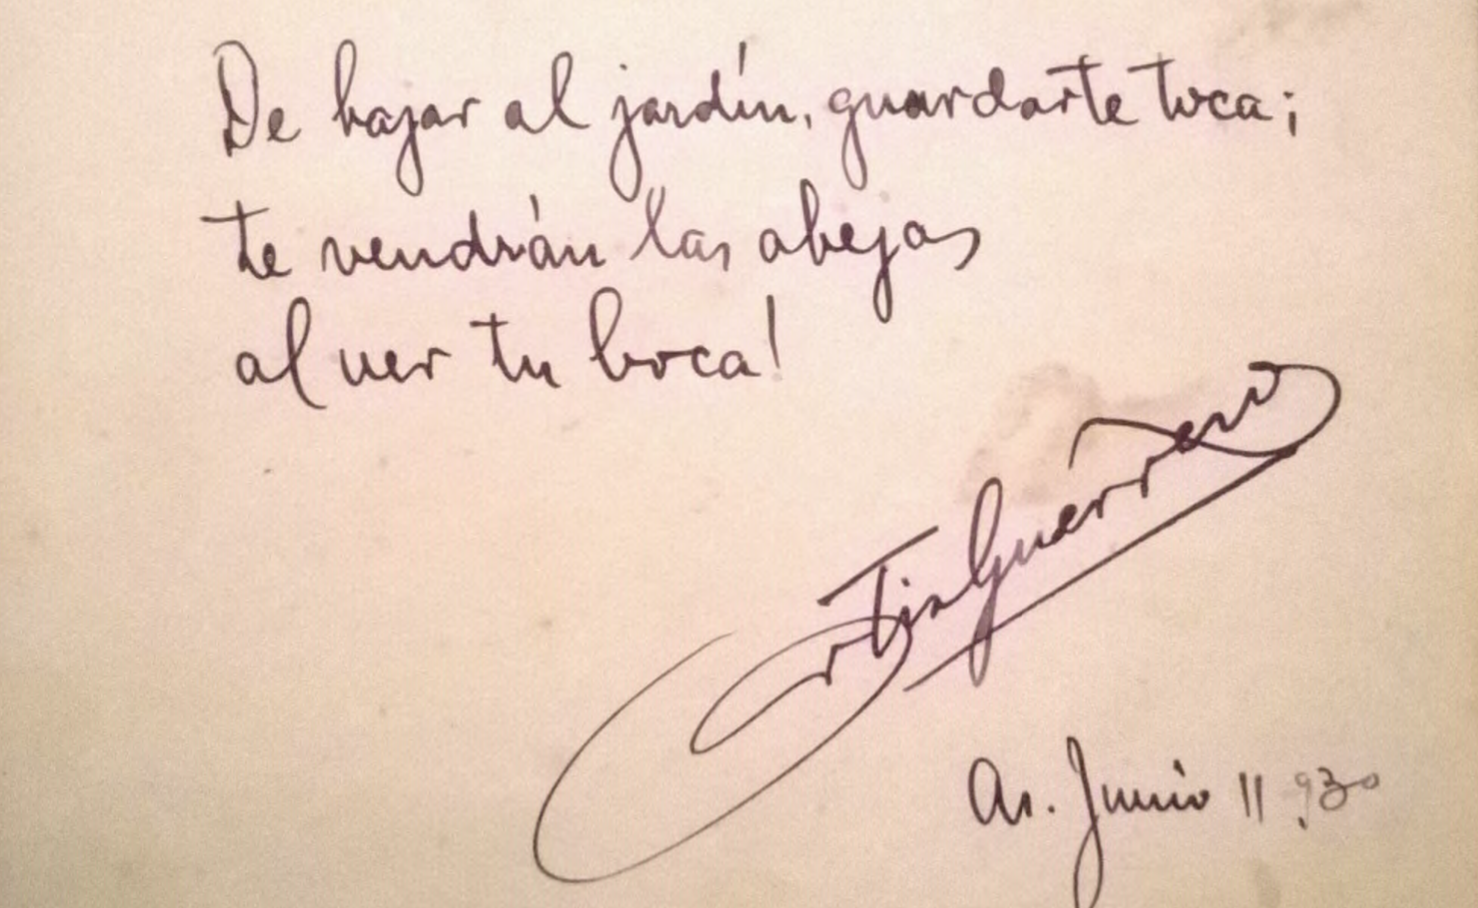 De bajar al jardín, guardarte toca;
te vendrán las abejas
al ver tu boca!
Guerrero
Junio 11 930